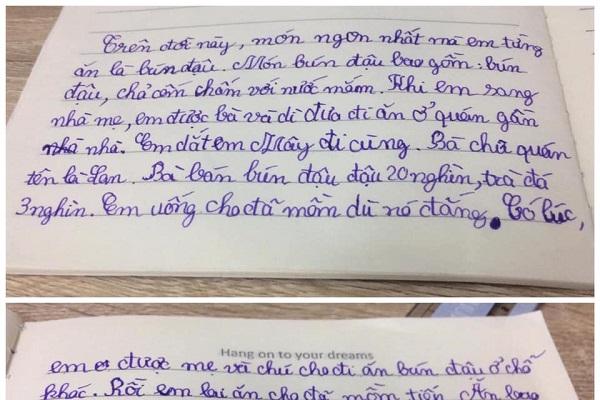 Trên đời này, món ngon nhất mà em từng
ăn là bún đậu. Món bún đậu bao gồm: bún
đậu, chả cốm chấm với nước mắm. Khi em sang
nhà mẹ, em được bà và dì đưa đi ăn ở quán gần
nhà. Em dắt em Mây đi cùng. Bà chủ quán
tên là Lan. Bà bán bún đậu đậu 20 nghìn, trà đá
3 nghìn. Em uống cho đã mồm dù nó đắng. Có lúc,
Hang on to your dreams
em được mẹ và chú cho đi ăn bún đậu ở chỗ
khác. Rồi em lại ăn cho đã mồm tiếp. Ăn bao